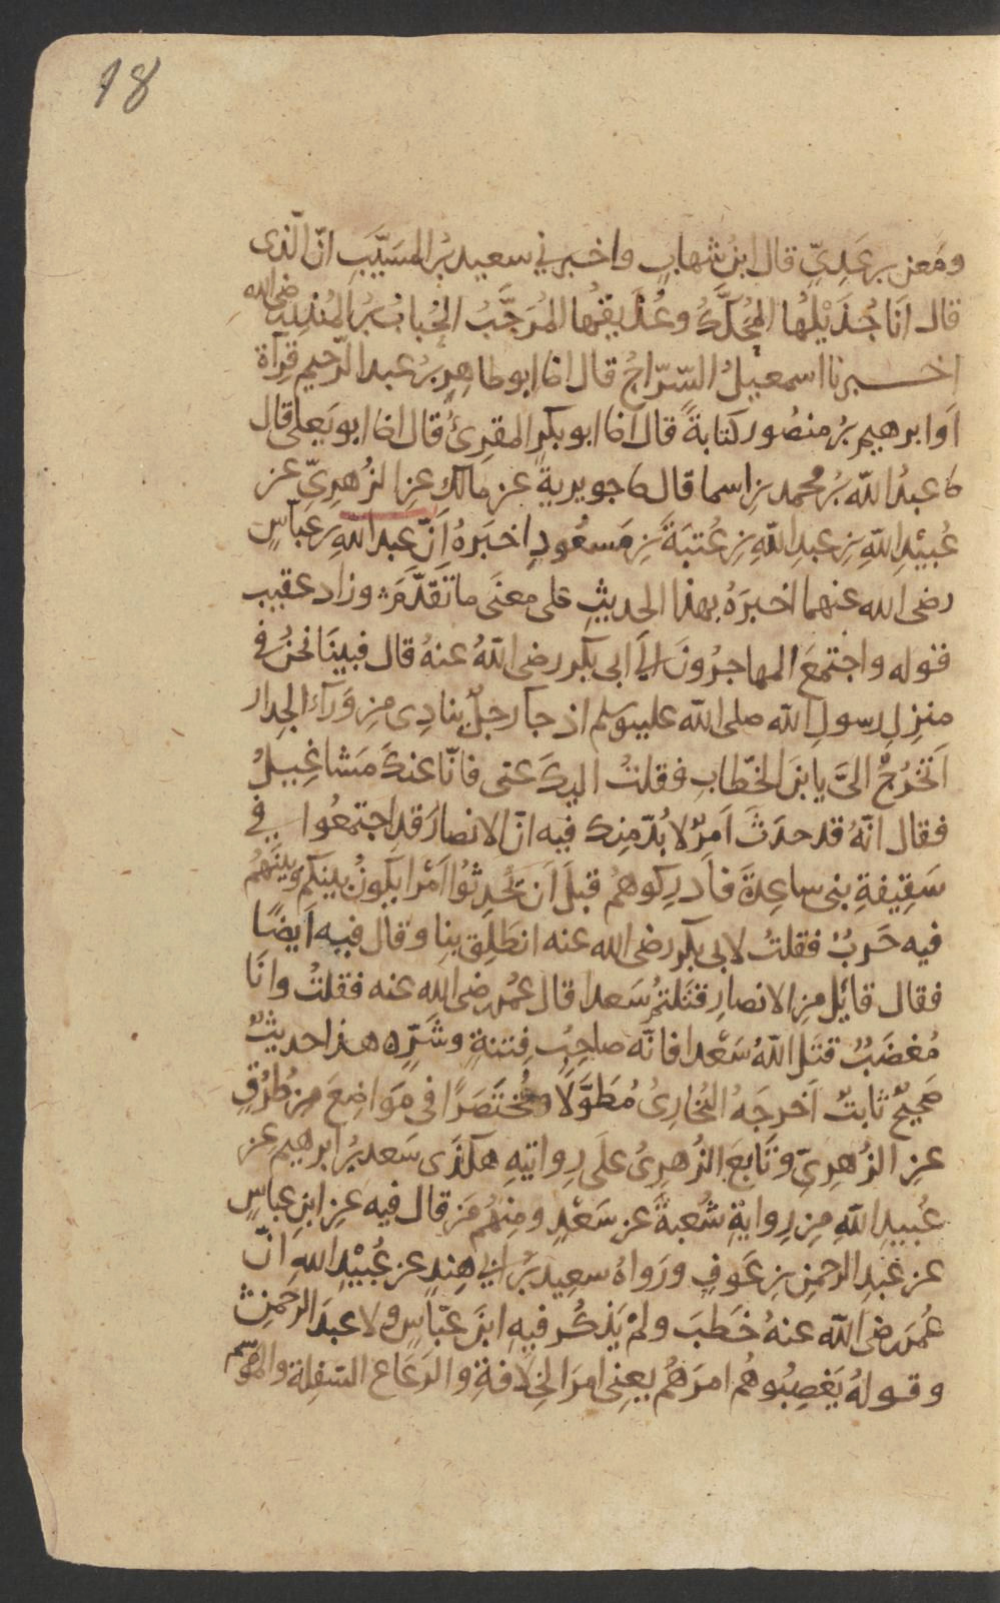 18
ومَعن بن عَدِيٍّ قال ابنُ شهابٍ واخبرني سعيد بنُ المسَيَّبِ انّ الّذى
قال اَنا جُذَيْلُها المُحَكَّكُ وعُذَيقُها المُرَجَّبُ الحُبابُ بنُ المُنذِرِ رضى الله
اخبرنا اسمعيلُ السّرّاجُ قال انا ابو طاهِرِ بنُ عبد الرّحيم قِرآةً
اَوا برهيم بنُ منصُور كتابةً قال اَنا ابو بكرِ المقرِئُ قال انا ابو يَعلى قال
نا عبدُ اللّه بنُ محمد بنِ اسما قال نا جويرية عن مالك عنِ الزُهرِيّ عن
عُبيْدِ اللّهِ بنِ عبدِ اللّهِ بنِ عُتبَةَ بنِ مَسعُودٍ اخبَرهُ اَنّ عبد اللّهِ بن عباسٍ
رضى الله عنهما اخبرَهُ بهذا الحديثِ على معنَى ما تَقَدَّمَ وزاد عقيب
قوله واجتمعَ المهاجرُونَ اِلى ابى بكر رضى اللّهُ عنهُ قال فبينَا نحنُ فى
منزِلِ رسولِ اللّه صلى اللّه عليه وسلم اذ جآ رجلٌ ينادِى مِن وَرآءِ الجِدار
اَتَخْرُجُ اِلىَّ يا بنَ الخطّابِ فقلتُ اليكَ عنى فانّا عنكَ مَشاغِيلُ
فقال انّهُ قد حدَثَ اَمرٌ لا بُدّ مِنك فيه انّ الانصارَ قدِ اجتمعُوا فى
سَقِيفةِ بنى ساعِدةَ فاَدرِكوهُم قبلَ اَن يُحدِثُوا اَمْرا يكونُ بينكم وبينَهُم
فيه حَربٌ فقلتُ لابى بكر رضى الله عنه انطَلِق بِنا وقال فيه اَيضًا
فقال قائلٌ مِن الانصارِ قتَلتُم سَعدا قال عُمر رضى الله عنه فقلتُ وانَا
مُغضَبٌ قتَل اللّهُ سَعْدا فانّه صاحِبُ فِتنةٍ وشَرٍّ هذا حديثٌ
صحيحٌ ثابتٌ اَخرجَهُ البُخارِىُ مُطَوَّلا ومُختَصَرًا فى مَواضِعَ مِن طُرُقٍ
عنِ الزُهرِىّ وتَابَعَ الزُهرِىَّ علَى رِوايتِهِ هكذَى سَعد بنُ ابرهيم عن
عُبيدِ اللّهِ مِن رِوايةِ شُعبةَ عن سَعْدٍ ومِنهُم مَن قال فيه عنِ ابنِ عباسٍ
عن عَبدِ الرحمنِ بنِ عَوفٍ ورَواهُ سعِيد بنُ ابي هِندٍ عن عُبَيْدِ اللّهِ انّ
عُمرَ رضى اللّه عنهُ خَطَبَ ولم يَذكُر فيهِ ابنَ عبّاسٍ ولا عبدَ الرحمنِ
وقولهُ يَغصِبُوهُم امرَهُم يعنِى امرَ الخِلافةِ والرَعَاع السّفِلة والموسم